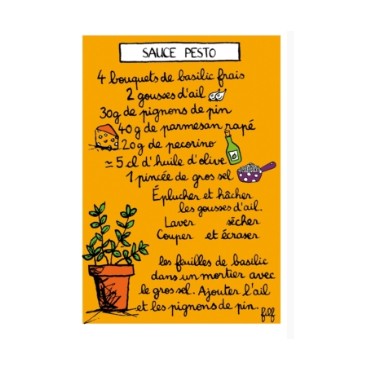 SAUCE PESTO
4 bouquets de basilic frais
2 gousses d'ail
30g de pignons de pin
40g de parmesan rapé
20g de pecorino
≃ 5 cl d'huile d'olive
1 pincée de gros sel
Éplucher et hâcher
les gousses d'ail.
Laver sècher
Couper et écraser
les feuilles de basilic
dans un mortier avec
le gros sel. Ajouter l'ail
et les pignons de pin.